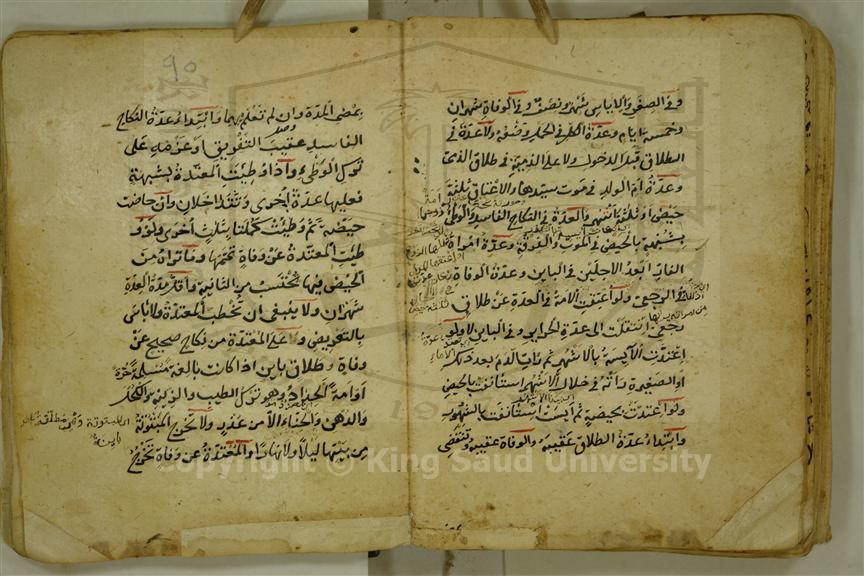 وفي الصغر والاياس شهر ونصف وفي الوفاة شهران
وخمسة ايام وعدة الحامل وضعه ولا عدة في
الطلاق قبل الدخول ولا على الذمية في طلاق الذمي
وعدة ام الولد في موت سيدها والاعتاق ثلثة
حيض او ثلثة اشهر والعدة في النكاح الفاسد والوطئ
بشبهة بالحيض في الموت والفرقة وعدة امراة
الفار ابعد الاجلين في الباين وعدة الوفاة
في الرجعي ولو اعتقت الامة في العدة عن طلاق
رجعي انتقلت الى عدة الحراير وفي الباين لا ولو
اعتدت الآيسة بالاشهر ثم رات الدم بعد ذلك
او الصغيرة راته في خلال الاشهر استانفت بالحيض
ولو اعتدت بحيضة ثم آيست استانفت بالشهور
وابتداء عدة الطلاق عقيبه والوفاة عقيبه وتنقضي
٩٠
بمضي المدة وان لم تعلم بهما وابتداء عدة النكاح
الفاسد عقيب التفريق او عزمه على
ترك الوطئ واذا وطئت المعتدة بشبهة
فعليها عدة اخرى وتتداخلان وان حاضت
حيضة ثم وطئت كملتها بثلث اخرى ولو و
طئت المعتدة عن وفاة تممتها وما تراه من
الحيض فيها يحتسب من الثانية واقل مدة العدة
شهران ولا ينبغي ان تخطب المعتدة ولا باس
بالتعريض وعلى المعتدة من نكاح صحيح عن
وفاة وطلاق باين اذا كانت بالغة مسلمة حرة
او امة الحداد وهو ترك الطيب والزينة والكحل
والدهن والحناء الا من عذر ولا تخرج المبتوتة
من بيتها ليلا ولا نهارا والمعتدة عن وفاة تخرج
Copyright © King Saud University